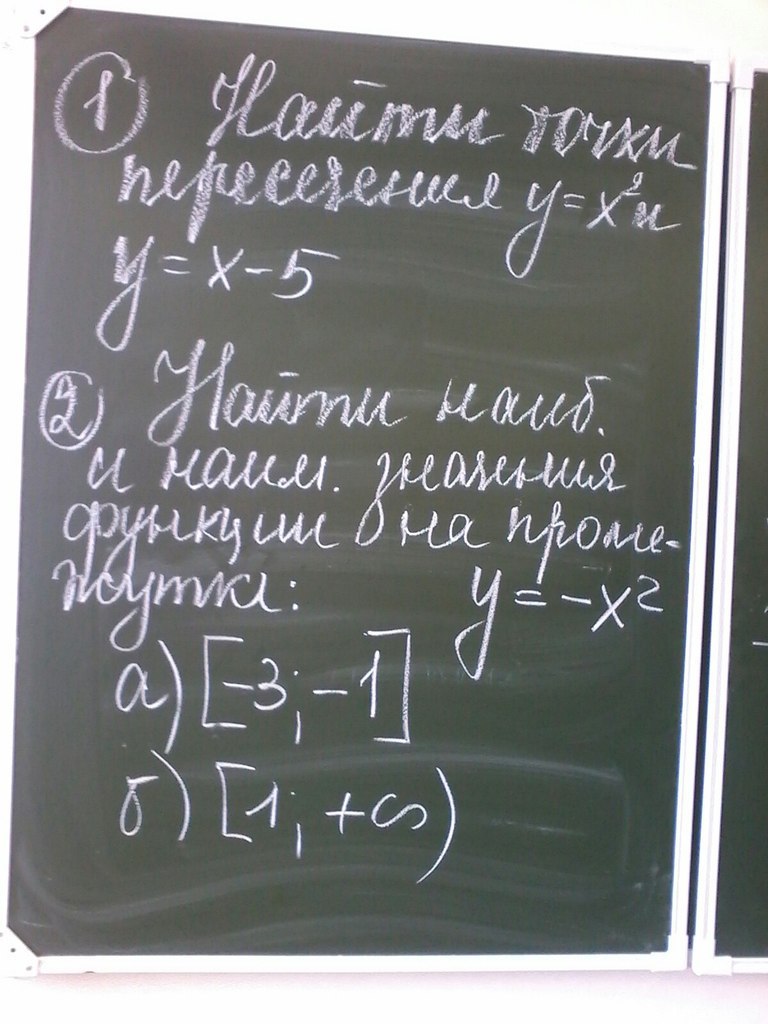 ① Найти точки
пересечения y = x² и
y = x - 5
② Найти наиб.
и наим. значения
функции на проме-
жутке: y = -x²
а) [-3; -1]
б) [1; +∞)